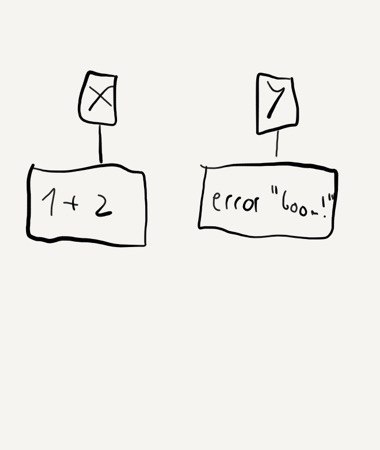 x
y
1 + 2
error "boom!"